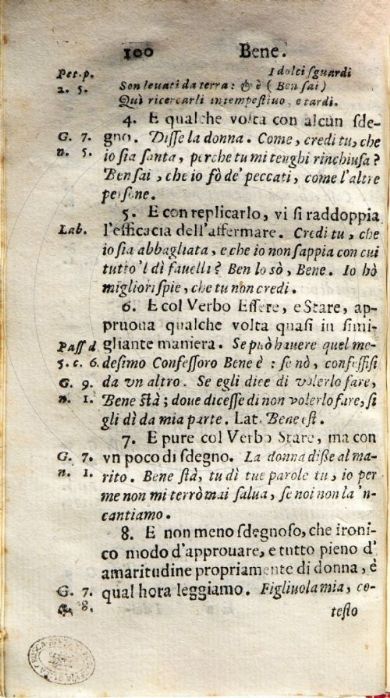 100 Bene.
Pet. p. I dolci sguardi
2. 5. Son levati da terra: & è (Ben sai)
Quì ricercarli intempestivo, e tardi.
4. E qualche volta con alcùn sde-
G. 7. gno. Disse la donna. Come, credi tu, che
n. 5. io sia santa, perche tu mi tenghi rinchiusa?
Ben sai, che io fò de' peccati, come l'altre
persone.
5. E con replicarlo, vi si raddoppia
Lab. l'efficacia dell'affermare. Credi tu, che
io sia abbagliata, e che io non sappia con cui
tutto 'l dì favelli? Ben lo sò, Bene. Io hò
migliori spie, che tu non credi.
6. E col Verbo Essere, e Stare, ap-
pruova qualche volta quasi in simi-
Pass d gliante maniera. Se può havere quel me-
5. c. 6. desimo Confessoro Bene è: se nò, confessisi
G. 9. da vn altro. Se egli dice di volerlo fare,
n. 1. Bene stà; dove dicesse di non volerlo fare, si
gli dì da mia parte. Lat. Bene est.
7. E pure col Verbo Stare, ma con
G. 7. vn poco di sdegno. La donna disse al ma-
n. 1. rito. Bene stà, tu dì tue parole tu, io per
me non mi terrò mai salva, se noi non la 'n-
cantiamo.
8. E non meno sdegnoso, che ironi-
co modo d'approuare, e tutto pieno d'
amaritudine propriamente di donna, è
G. 7. qual hora leggiamo. Figliuola mia, co-
8. testo